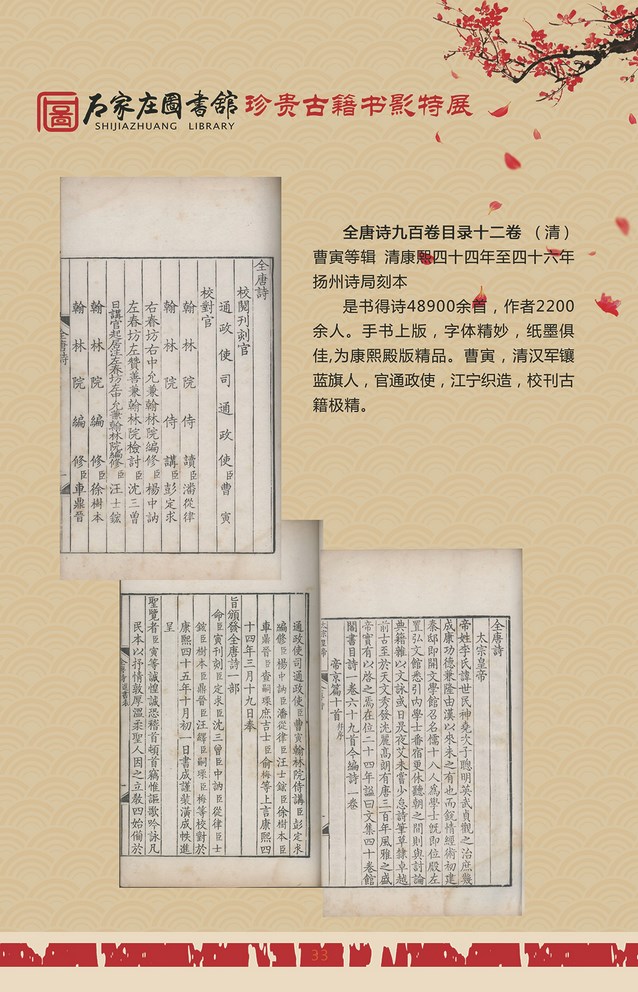 圖
石家庄圖書舘 珍贵古籍书影特展
SHIJIAZHUANG LIBRARY
全唐诗九百卷目录十二卷 （清）
曹寅等辑 清康熙四十四年至四十六年
扬州诗局刻本
是书得诗48900余首，作者2200
余人。手书上版，字体精妙，纸墨俱
佳,为康熙殿版精品。曹寅，清汉军镶
蓝旗人，官通政使，江宁织造，校刊古
籍极精。
全唐詩
校閱刊刻官
通政使司通政使臣曹寅
校對官
翰林院侍讀臣潘從律
翰林院侍講臣彭定求
右春坊右中允兼翰林院編修臣楊中訥
左春坊左贊善兼翰林院檢討臣沈三曾
日講官起居注左春坊左中允兼翰林院編修臣汪士鋐
翰林院編修臣徐樹本
翰林院編修臣車鼎晉
全唐詩
通政使司通政使臣曹寅翰林院侍講臣彭定求
編修臣楊中訥臣潘從律臣汪士鋐臣徐樹本臣
車鼎晉臣查嗣瑮庶吉士臣俞梅等上言康熙四
十四年三月十九日奉
旨頒發全唐詩一部
命臣寅刊刻臣定求臣沈三曾臣中訥臣從律臣士
鋐臣樹本臣鼎晉臣汪繹臣嗣瑮臣梅等校對於
康熙四十五年十月初一日書成謹裝潢成帙進
呈
聖覽者臣寅等誠惶誠恐稽首頓首竊惟謳歌吟詠凡
民本以抒情敦厚溫柔聖人因之立教四始備於
全唐詩
太宗皇帝
帝姓李氏諱世民神堯次子聰明英武貞觀之治庶幾
成康功德兼隆由漢以來未之有也而銳情經術初建
秦邸即開文學館召名儒十八人為學士既即位殿左
置弘文館悉引內學士番宿更休聽朝之間則與討論
典籍雜以文詠或日昃夜艾未嘗少怠詩筆草隸卓越
前古至於天文秀發沈麗高朗有唐三百年風雅之盛
帝實有以啓之焉在位二十四年諡曰文集四十卷館
閣書目詩一卷六十九首今編詩一卷
帝京篇十首并序
33